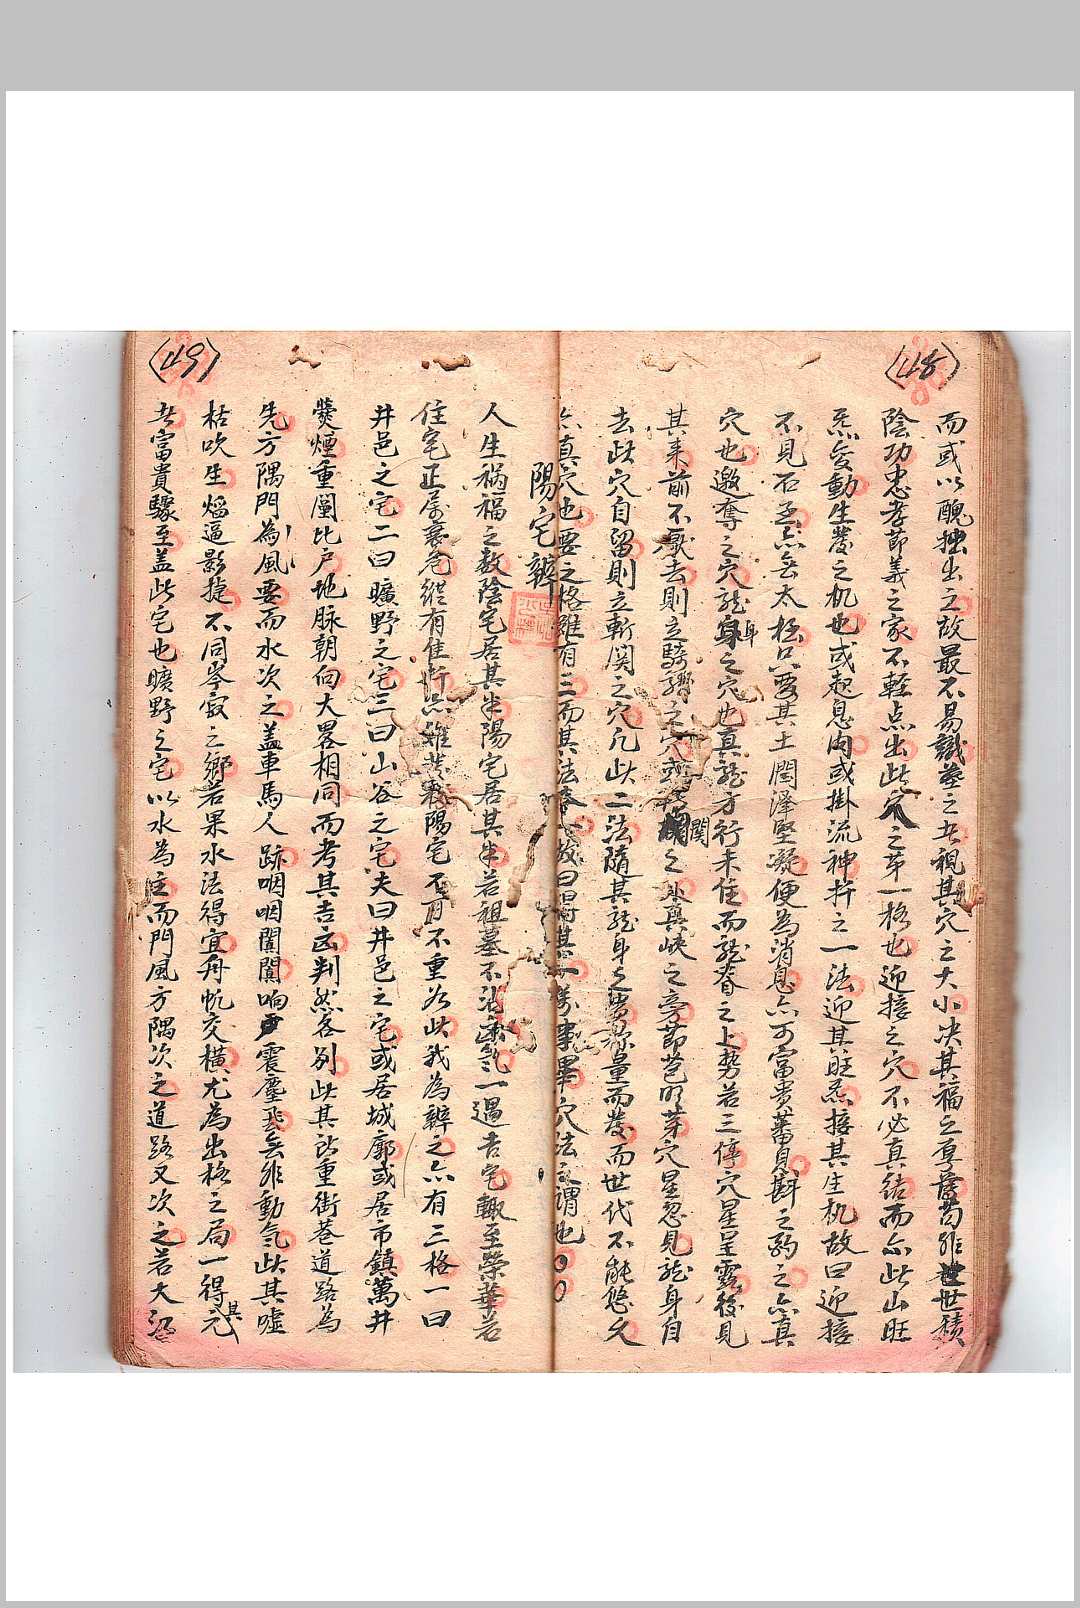 (48)
而或以醜拙出之故最不易識葬之者視其穴之大小决其福之厚薄苟非世積
陰功忠孝節義之家不輕点出此穴之第一格也迎接之穴不必真結而亦此山旺
炁發動生發之机也或起息肉或掛流神扦之一法迎其旺炁接其生机故曰迎接
不見石丞亦無太極只要其土潤澤堅凝便為消息亦可富貴之亦真
穴也邀奪之穴龍身之穴也真龍方行未住而龍脊之上势若三停穴星呈露後見
其来前不歇去則立騎之穴或關之真峡之旁節芽穴星忽見龍身自
去此穴自留則立斬関之穴凡此二法隨其龍身之貴量而發而世代不能悠久
亦真穴也要之格雖有三而其法故曰得其一萬事畢穴法之謂也
陽宅辨
(49)
人生禍福之数陰宅居其半陽宅居其半若祖墓不一遇吉宅輙至榮華若
住宅正有陽宅不可不重於此我為辨之亦有三格一曰
井邑之宅二曰曠野之宅三曰山谷之宅夫曰井邑之宅或居城廓或居市鎮萬井
煙重闉比户地脉朝向大畧相同而考其吉凶判然各別此其所重街巷道路為
先方隅門為風要而水次之盖車馬人跡咽咽闐闐响震塵飛無非動氣此其嘘
枯吹生焰逼影捷不同岑寂之鄉若果水法得宜舟帆交横尤為出格之局一得其元
者富貴驟至盖此宅也曠野之宅以水為主而門風方隅次之道路又次之若大